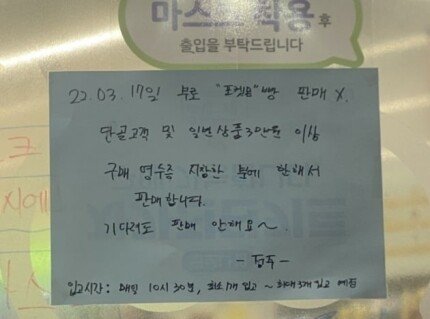 마스크 착용 후
출입을 부탁드립니다
22.03.17일 부로 "포켓몬"빵 판매 X.
단골고객 및 일반상품 3만원 이상
구매 영수증 지참한 분에 한해서
판매합니다.
기다려도 판매 안해요~
- 점주 -
입고시간: 매일 10시 30분, 최소 1개 입고 ~ 최대 3개 입고 예정